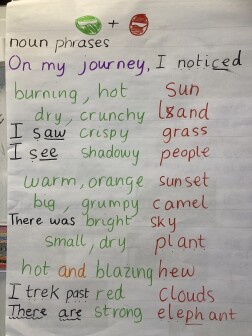 +
noun phrases
On my journey, I noticed
burning, hot sun
dry, crunchy sand
I saw crispy grass
I see shadowy people
warm, orange sunset
big, grumpy camel
There was bright sky
small, dry plant
hot and blazing hew
I trek past red clouds
There are strong elephant